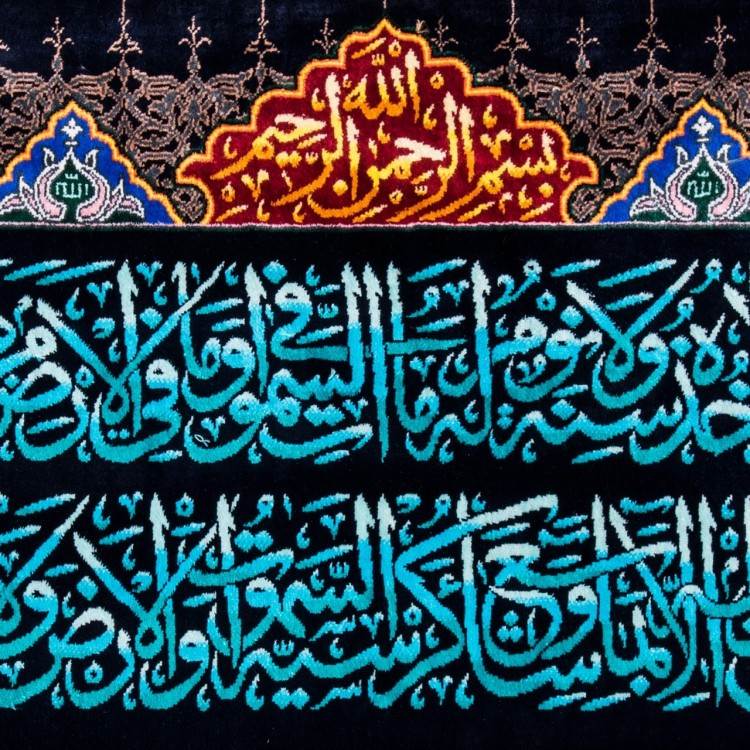 بسم الله الرحمن الرحيم
الله
الله
تأخذه سنة ولا نوم له ما في السموات وما في الأرض
إلا بما شاء وسع كرسيه السموات والأرض ولا